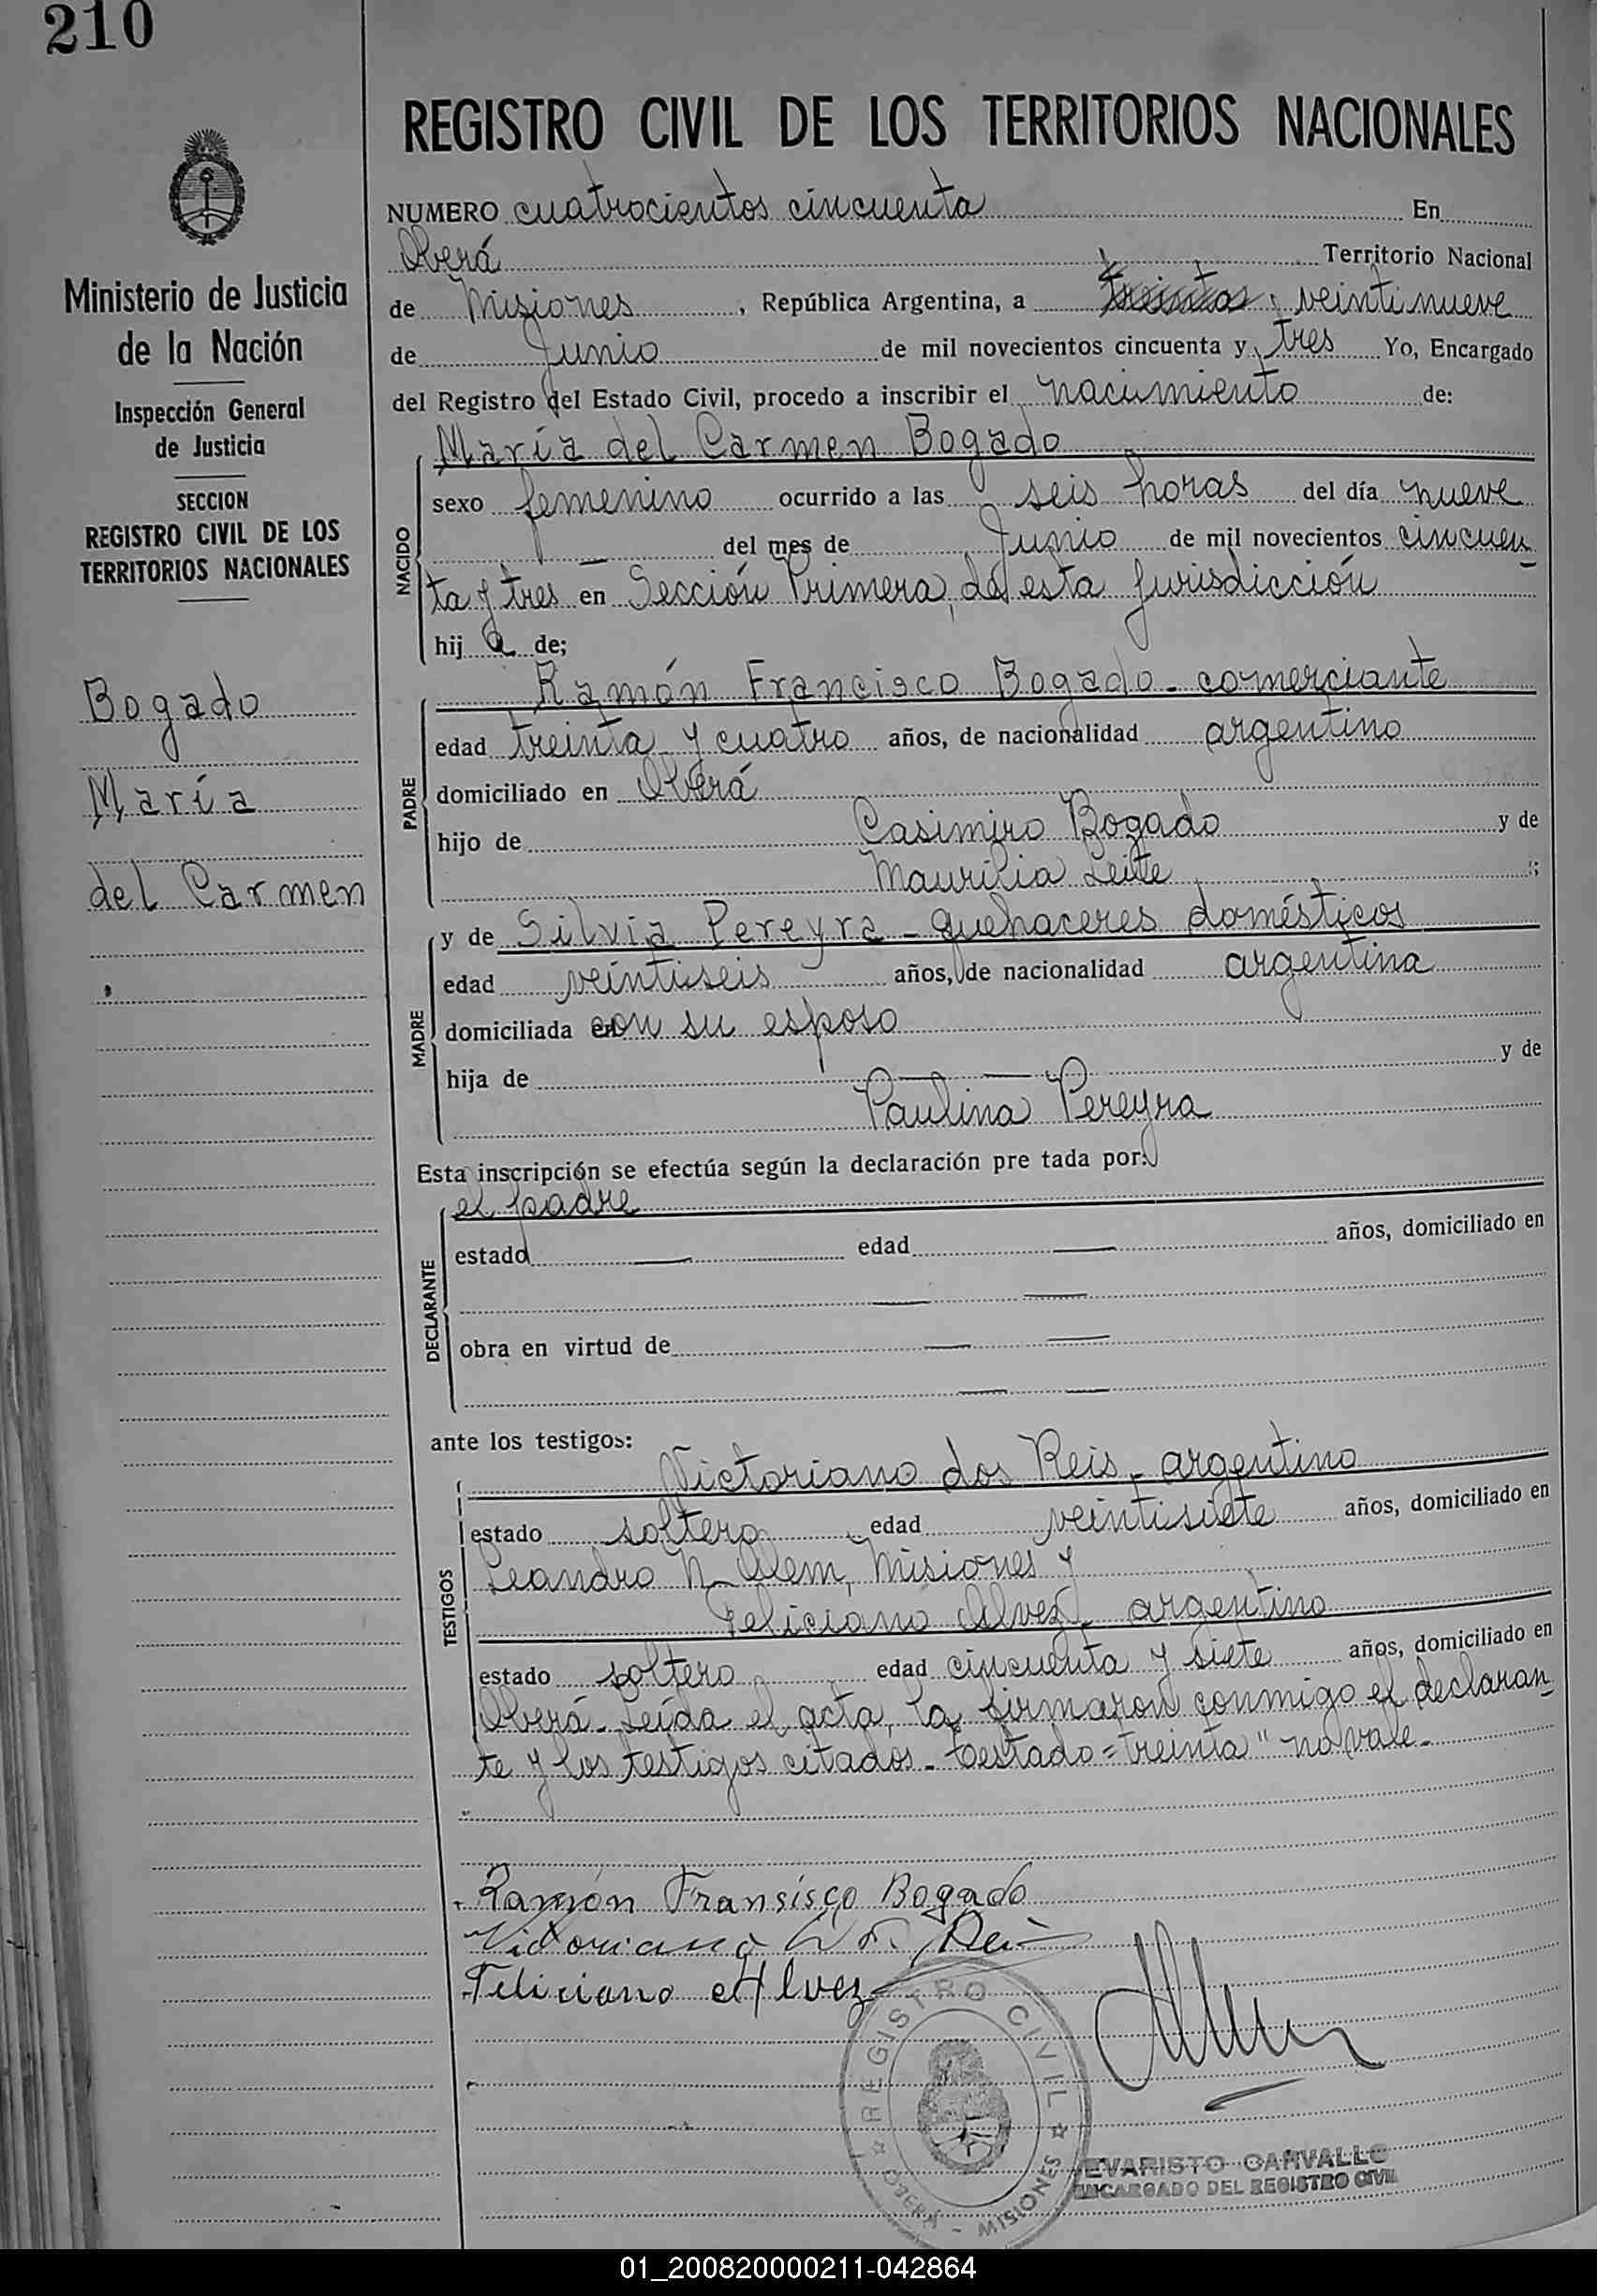 210
REGISTRO CIVIL DE LOS TERRITORIOS NACIONALES
Ministerio de Justicia
de la Nación
Inspección General
de Justicia
SECCION
REGISTRO CIVIL DE LOS
TERRITORIOS NACIONALES
Bogado
María
del Carmen
NUMERO cuatrocientos cincuenta En
Oberá Territorio Nacional
de Misiones, República Argentina, a treinta veintinueve
de Junio de mil novecientos cincuenta y tres Yo, Encargado
del Registro del Estado Civil, procedo a inscribir el nacimiento de:
NACIDO
María del Carmen Bogado
sexo femenino ocurrido a las seis horas del día nueve
— del mes de Junio de mil novecientos cincuen
ta y tres en Sección Primera, de esta jurisdicción
hij a de;
PADRE
Ramón Francisco Bogado - comerciante
edad treinta y cuatro años, de nacionalidad argentino
domiciliado en Oberá
hijo de Casimiro Bogado y de
Maurilia Leite ;
MADRE
y de Silvia Pereyra - quehaceres domésticos
edad veintiseis años, de nacionalidad argentina
domiciliada en con su esposo
hija de — — y de
Paulina Pereyra
Esta inscripción se efectúa según la declaración pre tada por:
DECLARANTE
el padre
estado — edad — años, domiciliado en
— —
obra en virtud de — —
— —
ante los testigos:
TESTIGOS
Victoriano dos Reis - argentino
estado soltero edad veintisiete años, domiciliado en
Leandro N. Alem, Misiones y
Feliciano Alvez - argentino
estado soltero edad cincuenta y siete años, domiciliado en
Oberá - Leída el acta, la firmaron conmigo el declaran
te y los testigos citados - testado = treinta" no vale -
Ramón Fransisco Bogado
Feliciano Alvez
REGISTRO CIVIL
OBERA - MISIONES
EVARISTO CARVALLO
ENCARGADO DEL REGISTRO CIVIL
01_200820000211-042864